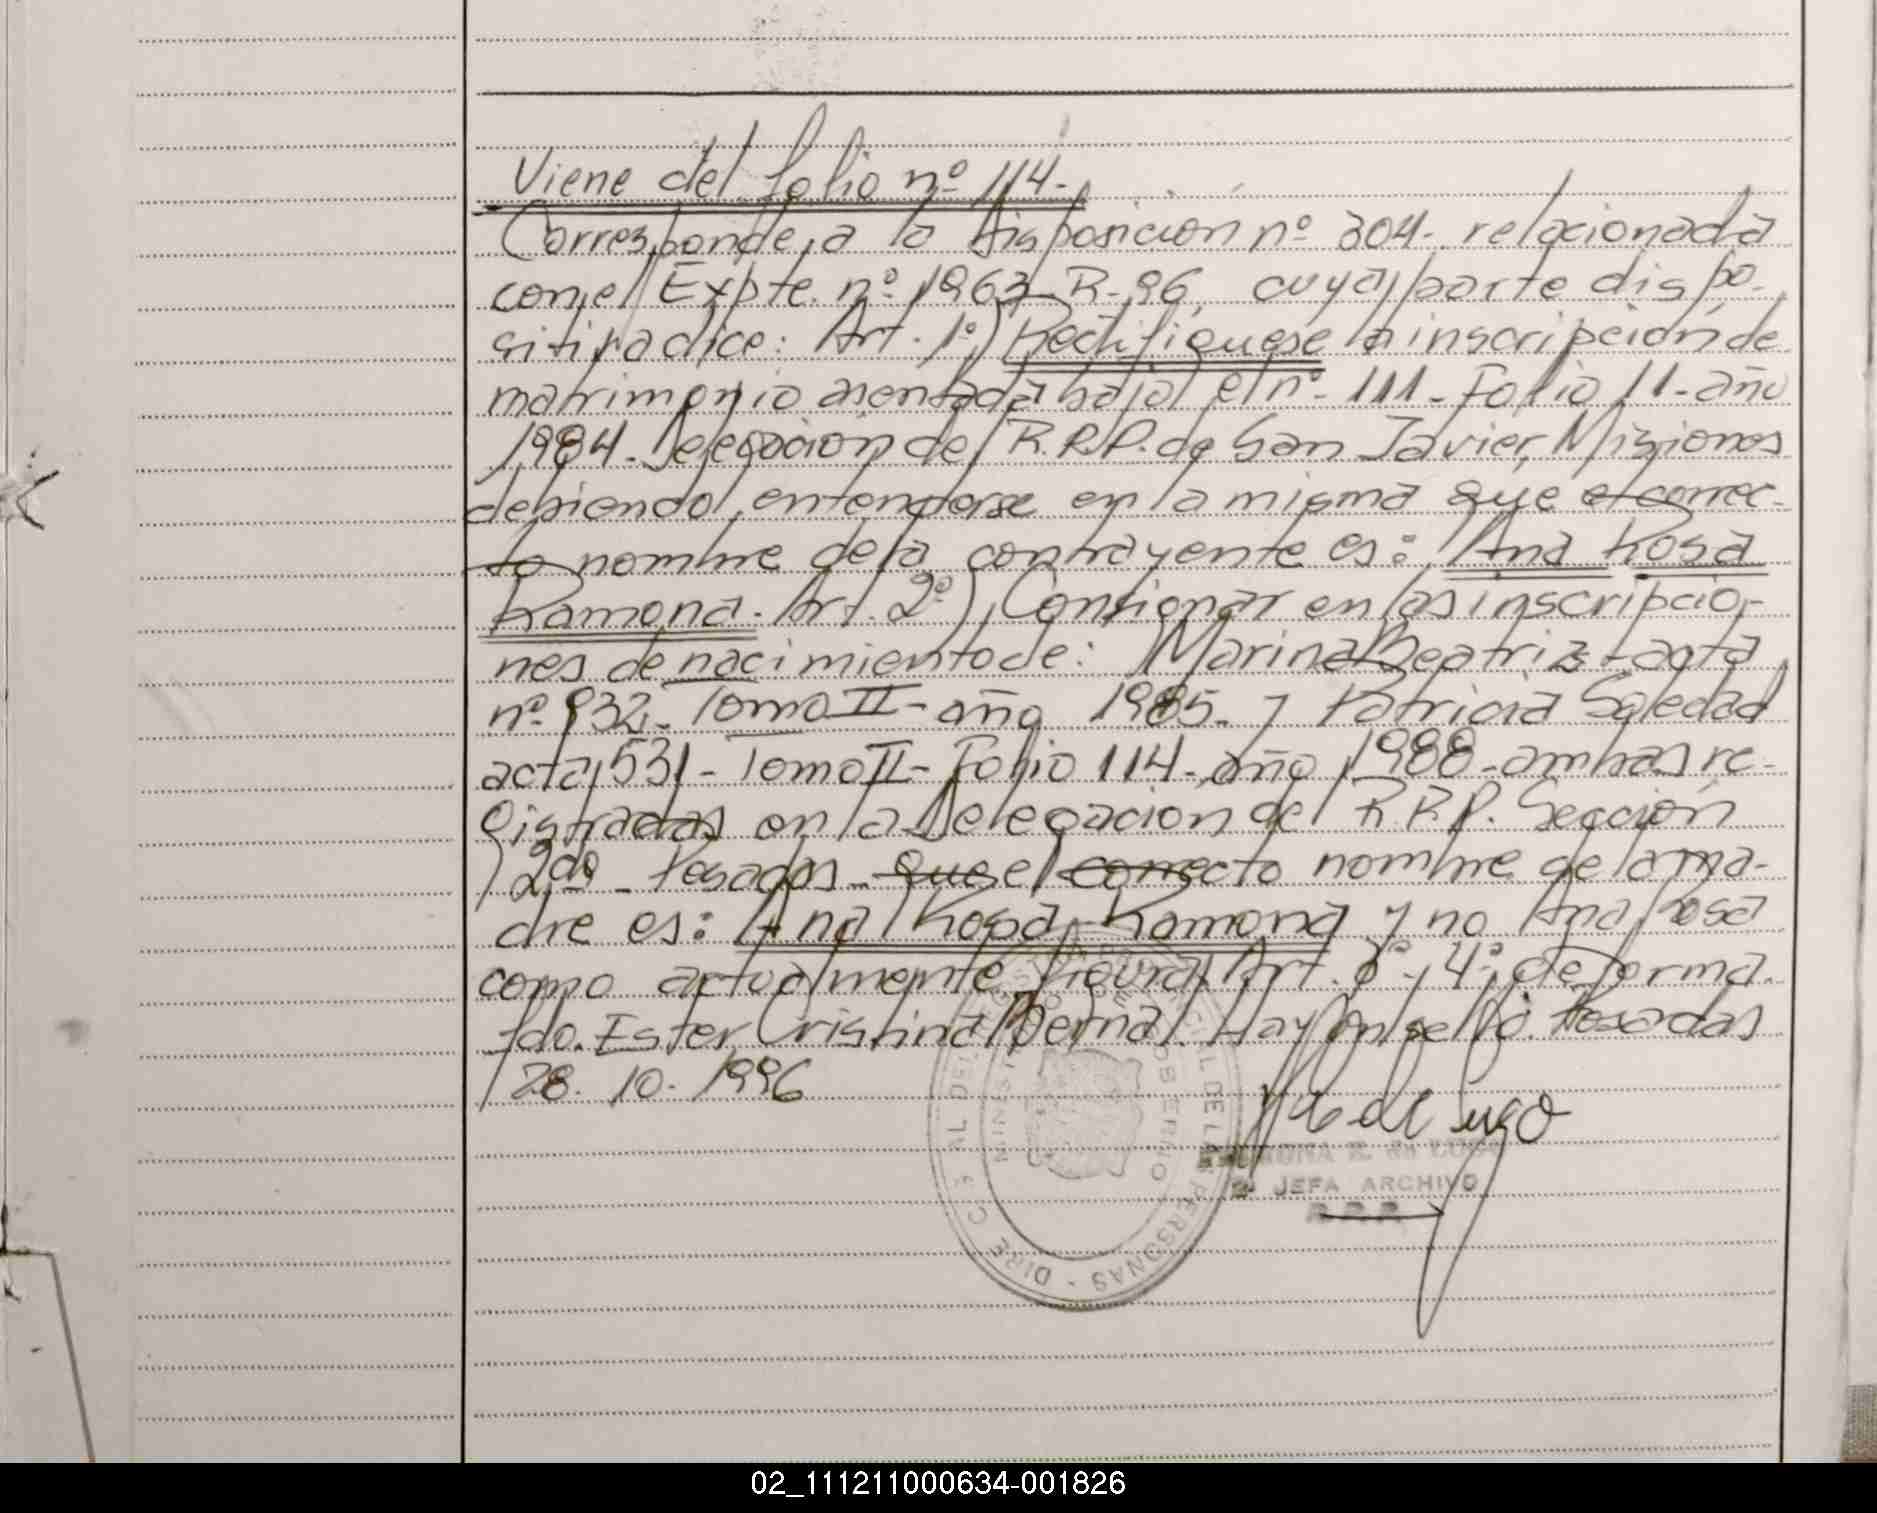 Viene del folio nº 114-
Corresponde a la Disposicion nº 304- relacionada
con el Expte. nº 1963-R-96, cuya parte dispo-
sitiva dice: Art. 1º) Rectifiquese la inscripcion de
matrimonio asentada bajo el nº- 111- Folio 11- año
1984- Delegacion de R.P.P. de San Javier, Misiones
debiendo entenderse en la misma que el correc-
to nombre de la contrayente es: Ana Rosa
Ramona. Art. 2º) Consignar en las inscripcio-
nes de nacimiento de: Marina Beatriz - acta
nº 932- Tomo II- año 1985- y Patricia Soledad
acta 531- Tomo II- Folio 114- año 1988- ambas re-
gistradas en la Delegacion de R.P.P. Sección
2da - Posadas - que el correcto nombre de la ma-
dre es: Ana Rosa Ramona y no Ana Rosa
como actualmente figura. Art. 3º-, 4º-, de forma.
fdo. Ester Cristina Bernal. Hay un sello. Posadas
28. 10. 1996
DE LAS PERSONAS - DIRE
E. de LUGO
JEFA ARCHIVO
R.P.P.
02_111211000634-001826